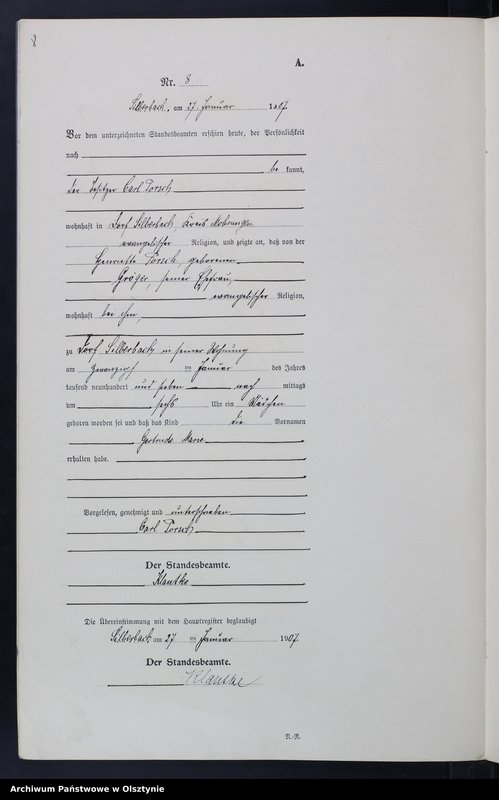 8
A.
Nr. 8
Silberbach, am 27 Januar 1907.
Vor dem unterzeichneten Standesbeamten erschien heute, der Persönlichkeit
nach
be kannt,
der Besitzer Carl Porsch
wohnhaft in Dorf Silberbach, Kreis Mohrungen
evangelischer Religion, und zeigte an, daß von der
Henriette Porsch, geborenen
Gröger, seiner Ehefrau,
evangelischer Religion,
wohnhaft bei ihm,
zu Dorf Silberbach in seiner Wohnung
am zwanzigsten Januar des Jahres
tausend neunhundert und sieben nach mittags
um sechs Uhr ein Mädchen
geboren worden sei und daß das Kind die Vornamen
Gertrude Marie
erhalten habe.
Vorgelesen, genehmigt und unterschrieben
Carl Porsch
Der Standesbeamte.
Klautke
Die Übereinstimmung mit dem Hauptregister beglaubigt
Silberbach am 27 ten Januar 1907.
Der Standesbeamte.
Klautke
Archiwum Państwowe w Olsztynie